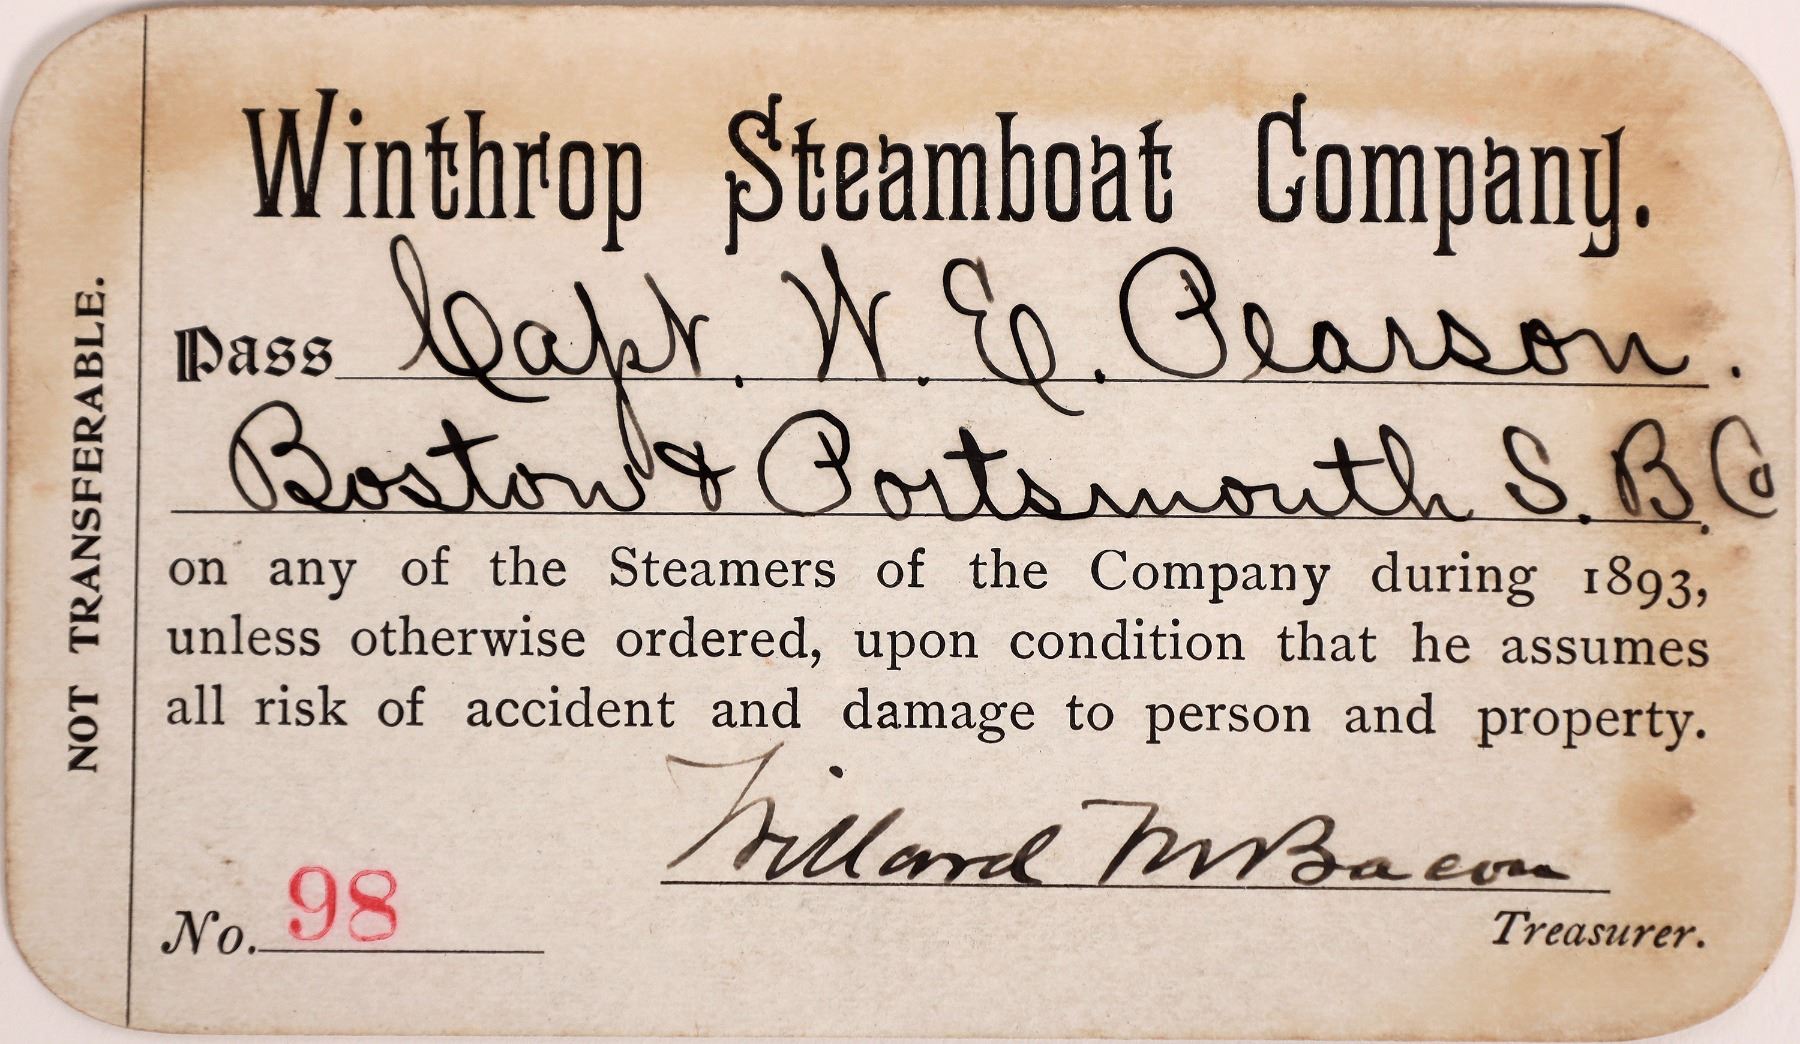 Winthrop Steamboat Company.
Pass Capt. W. E. Pearson.
Boston & Portsmouth S. B. Co
on any of the Steamers of the Company during 1893,
unless otherwise ordered, upon condition that he assumes
all risk of accident and damage to person and property.
Willard M Bacon
No. 98
Treasurer.
NOT TRANSFERABLE.